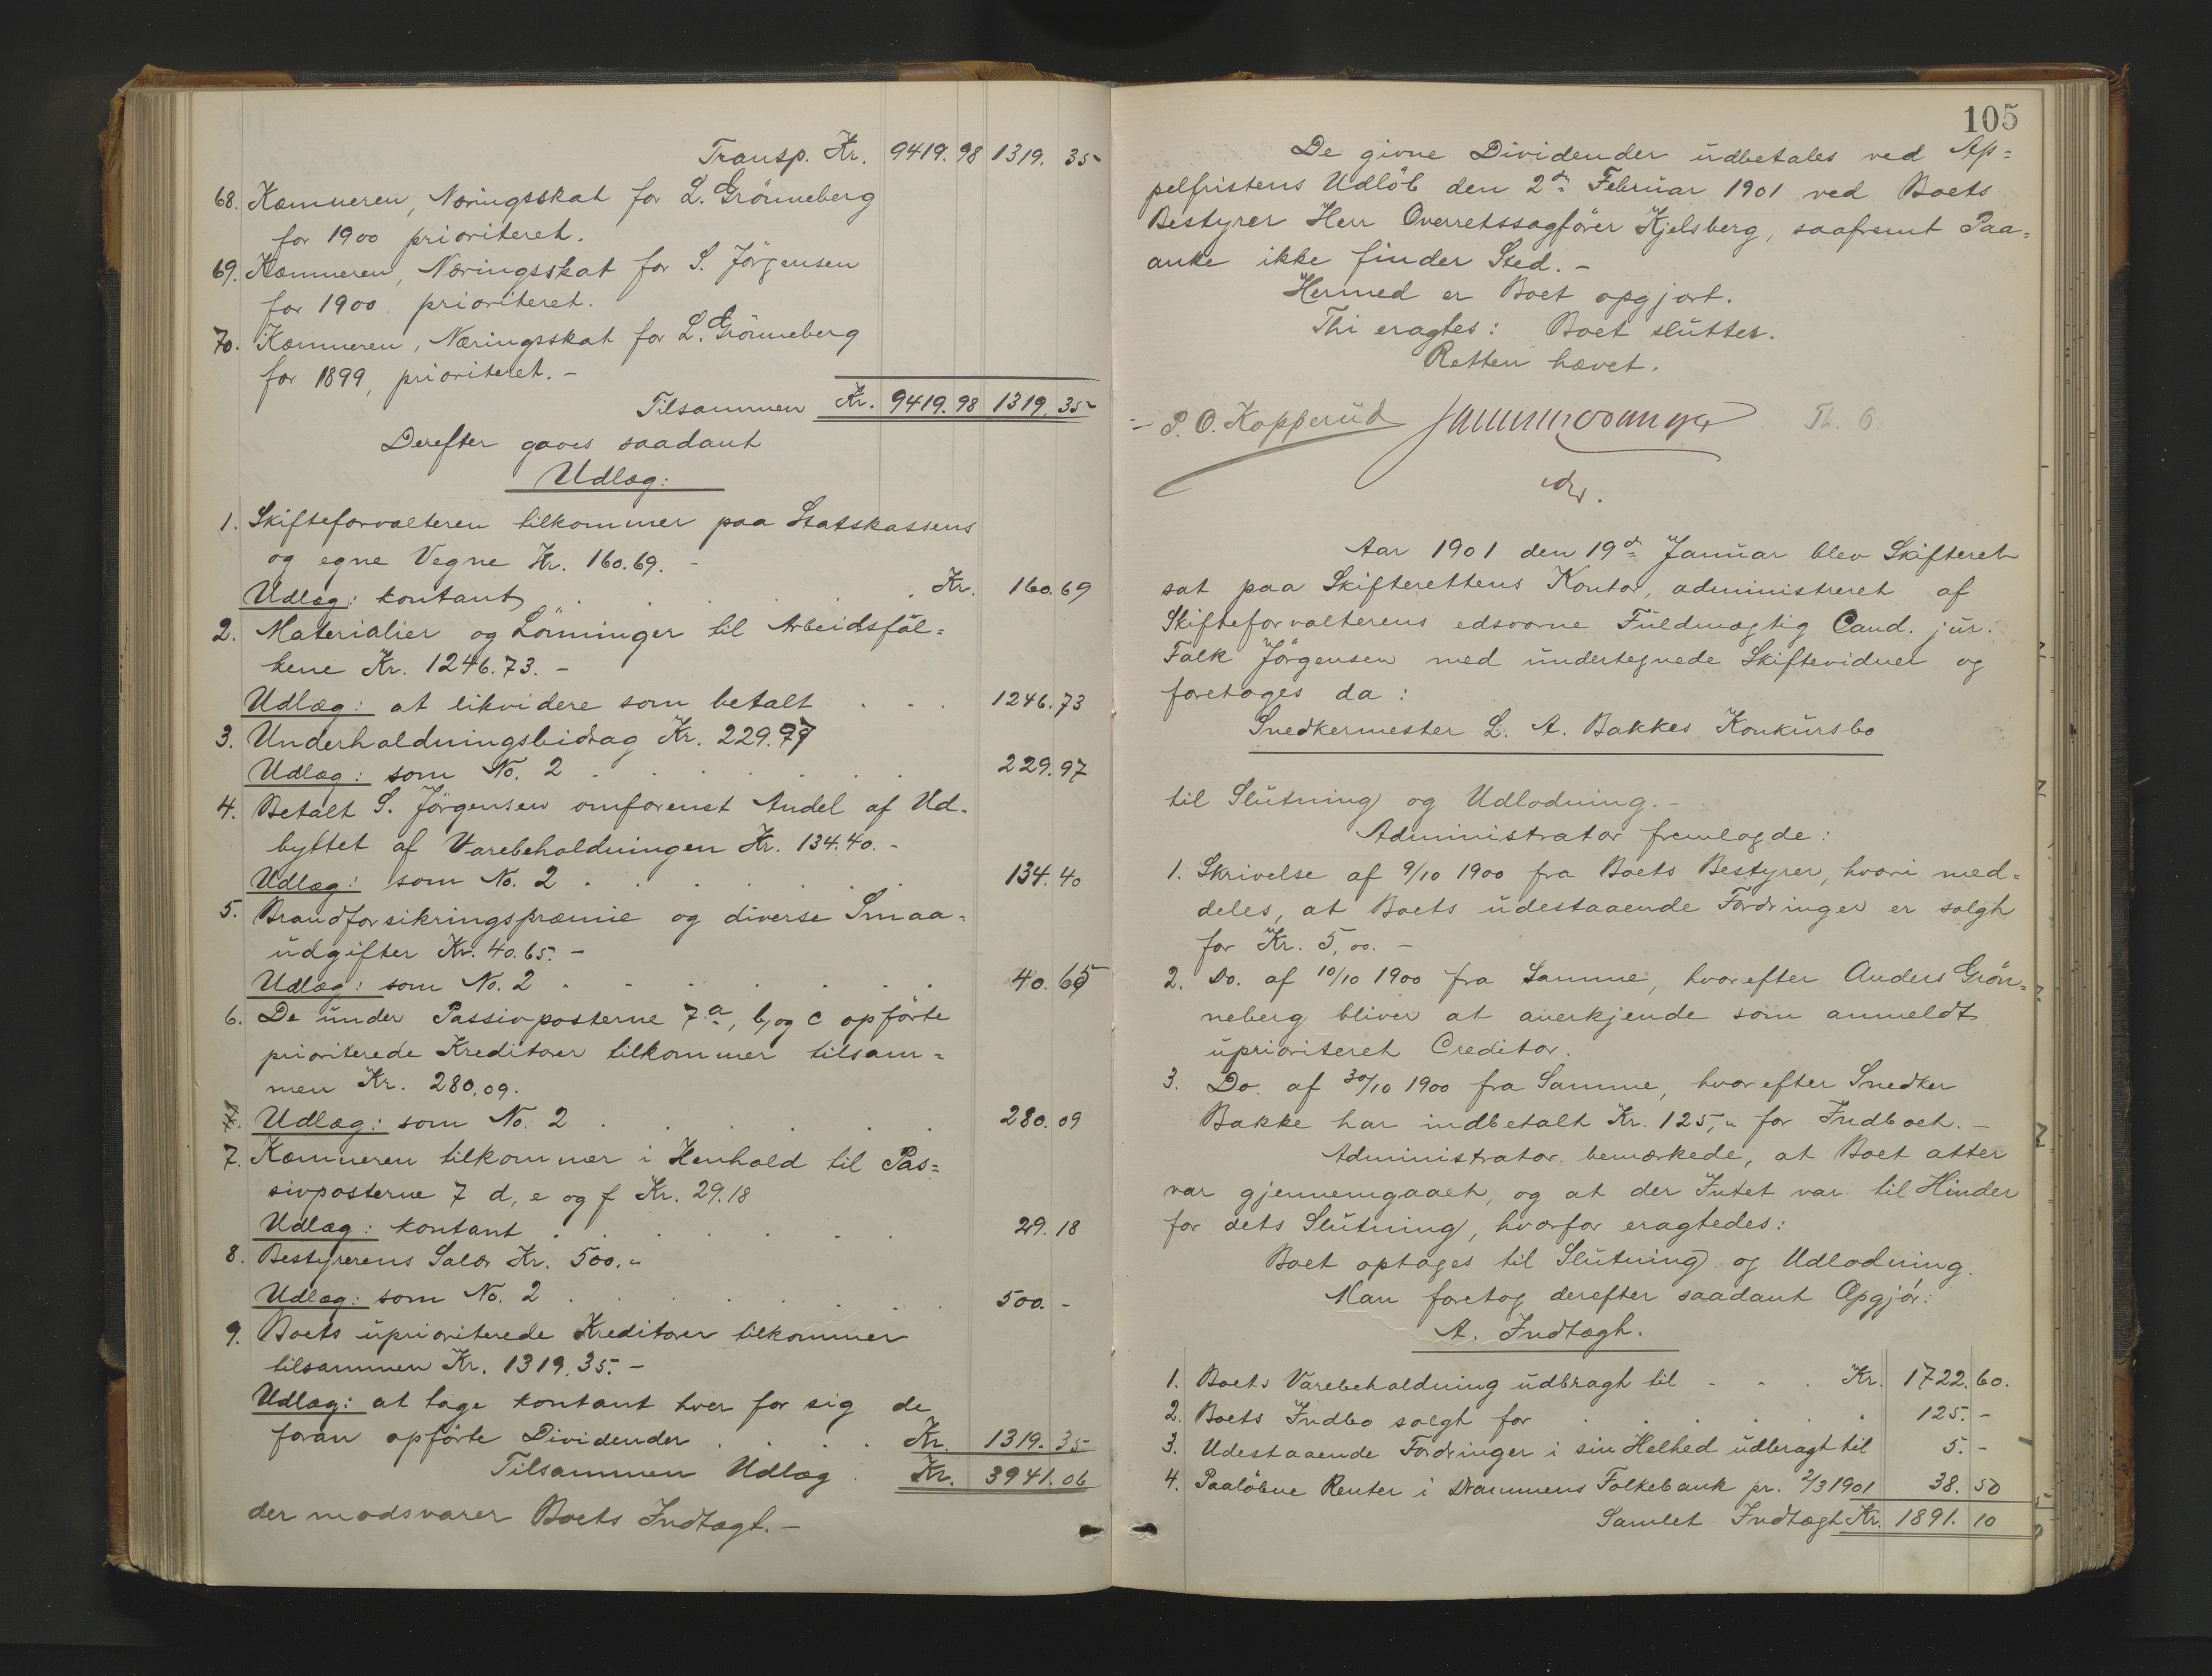 Transp. Kr. 9419.98 1319.35
68. Kæmneren, Næringsskat for L. Grönneberg
for 1900 prioriteret.
69. Kæmneren, Næringsskat for S. Jörgensen
for 1900 prioriteret.
70. Kæmneren, Næringsskat for L. Grönneberg
for 1899, prioriteret. -
Tilsammen Kr. 9419.98 1319.35
Derefter gaves saadant
Udlæg:
1. Skifteforvalteren tilkommer paa Statskassens
og egne Vegne Kr. 160.69. -
Udlæg: kontant . . . . . Kr. 160.69
2. Materialier og Lönninger til Arbeidsfol=
kene Kr. 1246.73. -
Udlæg: at likvidere som betalt . . . 1246.73
3. Underholdningsbidrag Kr. 229.97
Udlæg: som No. 2 . . . . . . 229.97
4. Betalt S. Jörgensen omforenet Andel af Ud-
byttet af Varebeholdningen Kr. 134.40. -
Udlæg: som No. 2 . . . . . . 134.40
5. Brandforsikringspræmie og diverse Smaa=
udgifter Kr. 40.65. -
Udlæg: som No. 2 . . . . . . 40.65
6. De under Passivposterne 7 a, b, og c opförte
prioriterede Kreditorer tilkommer tilsam=
men Kr. 280.09.
Udlæg: som No. 2 . . . . . . 280.09
7. Kæmneren tilkommer i Henhold til Pas=
sivposterne 7 d, e og f Kr. 29.18
Udlæg: kontant . . . . . . 29.18
8. Bestyrerens Salær Kr. 500."
Udlæg: som No. 2 . . . . . . 500. -
9. Boets uprioriterede Kreditorer tilkommer
tilsammen Kr. 1319.35. -
Udlæg: at tage kontant hver for sig de
foran opförte Dividender . . . . Kr. 1319.35
Tilsammen Udlæg . Kr. 3941.06
der modsvarer Boets Indtægt. -
105
De givne Dividender udbetales ved Ap=
pelfristens Udlöb den 2den Februar 1901 ved Boets
Bestyrer Herr Overretssagförer Kjelsberg, saafremt Paa=
anke ikke finder Sted. -
Hermed er Boet opgjort.
Thi eragtes: Boet sluttes.
Retten hævet.
P. O. Kopperud Th. O.
Aar 1901 den 19de Januar blev Skifteret
sat paa Skifterettens Kontor, administreret af
Skifteforvalterens edsvorne Fuldmægtig Cand. jur.
Falk Jörgensen med undertegnede Skiftevidner og
foretages da:
Snedkermester L. A. Bakkes Konkursbo
til Slutning og Udlodning. -
Administrator fremlagde:
1. Skrivelse af 9/10 1900 fra Boets Bestyrer, hvori med=
deles, at Boets udestaaende Fordringer er solgt
for Kr. 5,00. -
2. Do. af 10/10 1900 fra Samme, hvorefter Anders Grön=
neberg bliver at anerkjende som anmeldt
uprioriteret Creditor.
3. Do. af 30/10 1900 fra Samme, hvorefter Snedker
Bakke har indbetalt Kr. 125," for Indboet. -
Administrator bemærkede, at Boet atter
var gjennemgaaet, og at der Intet var til Hinder
for dets Slutning, hvorfor eragtedes:
Boet optages til Slutning og Udlodning.
Man foretog derefter saadant Opgjör:
A. Indtægt.
1. Boets Varebeholdning udbragt til - - . Kr. 1722.60.
2. Boets Indbo solgt for . . . . . . 125. -
3. Udestaaende Fordringer i sin Helhed udbragt til 5. -
4. Paalöbne Renter i Drammens Folkebank pr. 2/3 1901 38.50
Samlet Indtægt Kr. 1891.10